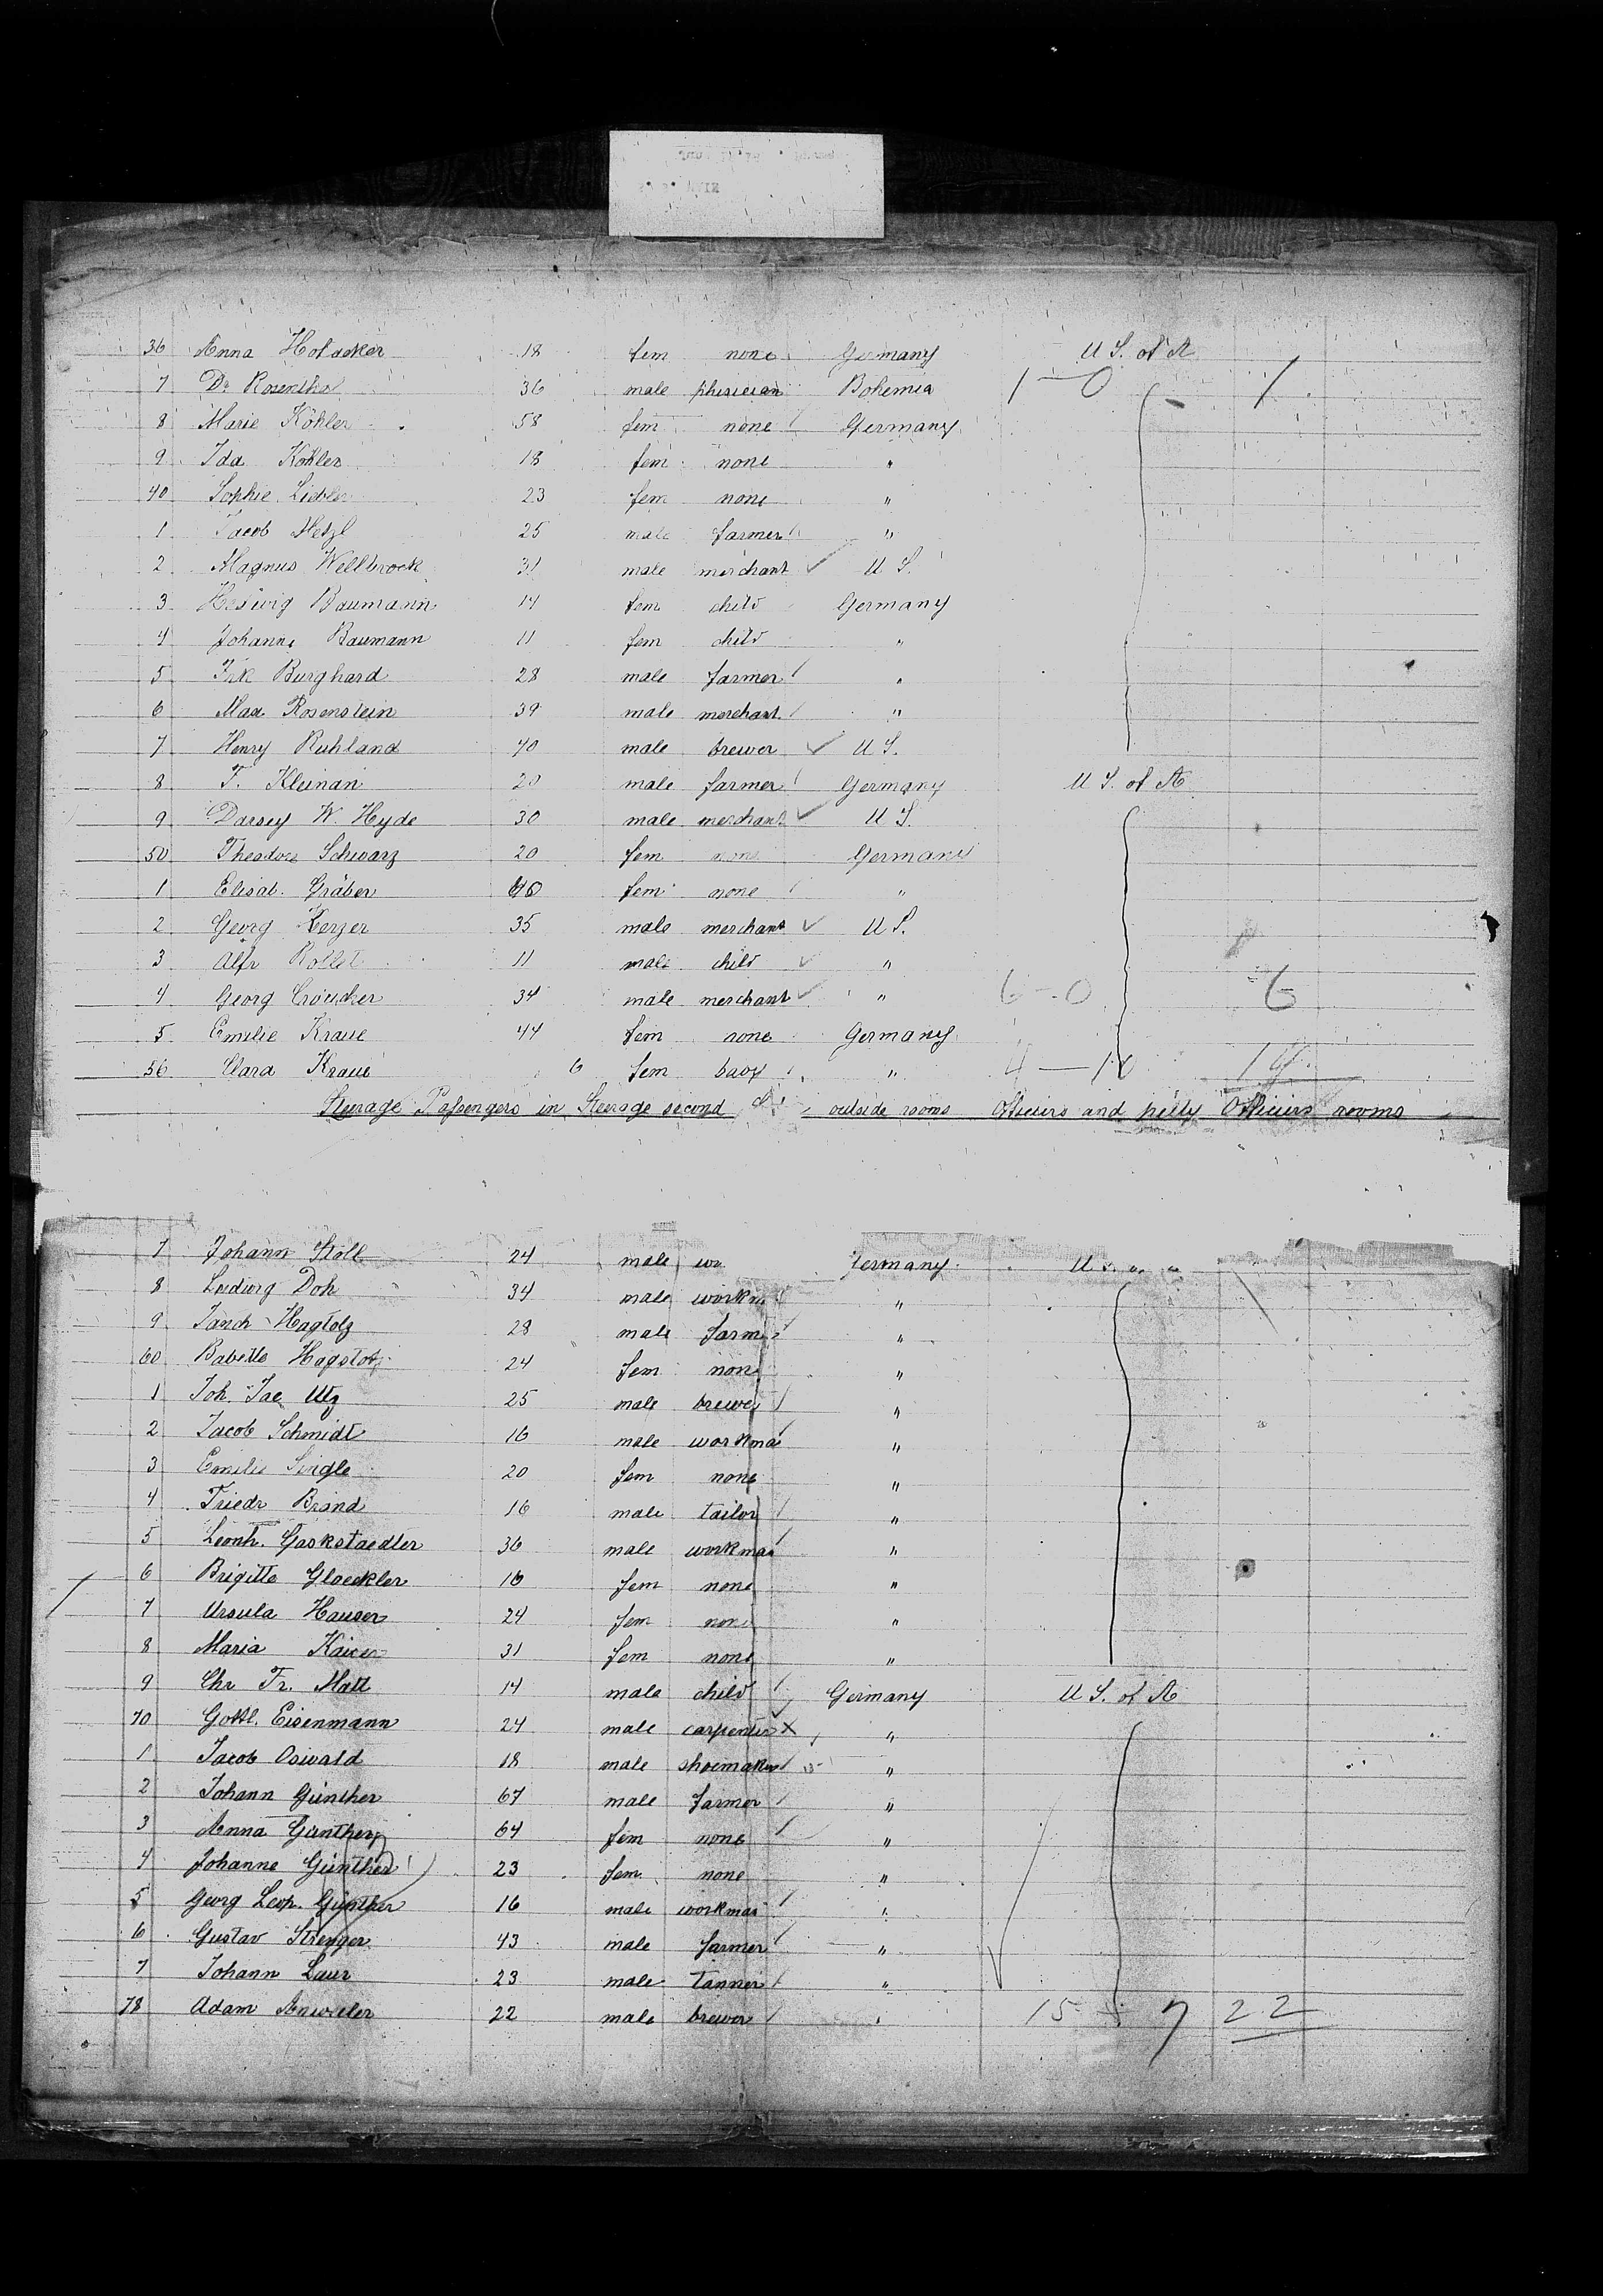 36 Anna Hofacker 18 fem none Germany U S. of A
7 Dr Rosenthal 36 male phisician Bohemia 1 — 0 1
8 Marie Köhler 58 fem none Germany
9 Ida Köhler 18 fem none "
40 Sophie 23 fem none "
1 Jacob Metzl 25 male farmer "
2 Magnus Wellbrock 31 male merchant ✓ U S.
3 Hedwig Baumann 14 fem child Germany
4 Johanne Baumann 11 fem child "
5 Burghard 28 male farmer "
6 Max Rosenstein 39 male merchant "
7 Henry Ruhland 40 male brewer ✓ U S.
8 F. Kleinan 20 male farmer Germany U S. of A
9 Darsey W. Hyde 30 male merchant ✓ U S.
50 Theodore Schwarz 20 fem none Germany
1 Elisab. Gräber 40 fem none "
2 Georg 35 male merchant ✓ U S.
3 Alfr Rollet 11 male child ✓ "
4 Georg Croucher 34 male merchant ✓ " 6 - 0 6
5 Emilie Kraue 44 fem none Germany
56 Clara Kraue 6 fem baby " 4 — 10 14
Steerage Passengers in Steerage second outside rooms Officiers and petty Officiers rooms
7 Johann Stoll 24 male Germany U
8 Ludwig Doh 34 male workm "
9 Hagstolz 28 male farm "
60 Babette Hagstolz 24 fem none "
1 Joh. Jac. Utz 25 male brewer "
2 Jacob Schmidt 16 male workma "
3 Emilie Single 20 fem none "
4 Friedr Brand 16 male tailor "
5 Leonh. Gackstaedter 36 male workman "
6 Brigitte Gloeckler 16 fem none "
7 Ursula Hauser 24 fem none "
8 Maria Kaiser 31 fem none "
9 Chr Fr. Matt 14 male child Germany U S. of A
70 Gottl. Eisenmann 24 male carpenter X "
1 Jacob Oswald 18 male shoemaker "
2 Johann Günther 67 male farmer "
3 Anna Günther 64 fem none "
4 Johanne Günther 23 fem none "
5 Georg Leop. Günther 16 male workman "
6 Gustav Strenger 43 male farmer "
7 Johann Laur 23 male tanner "
78 Adam Anweiler 22 male brewer " 15 7 22